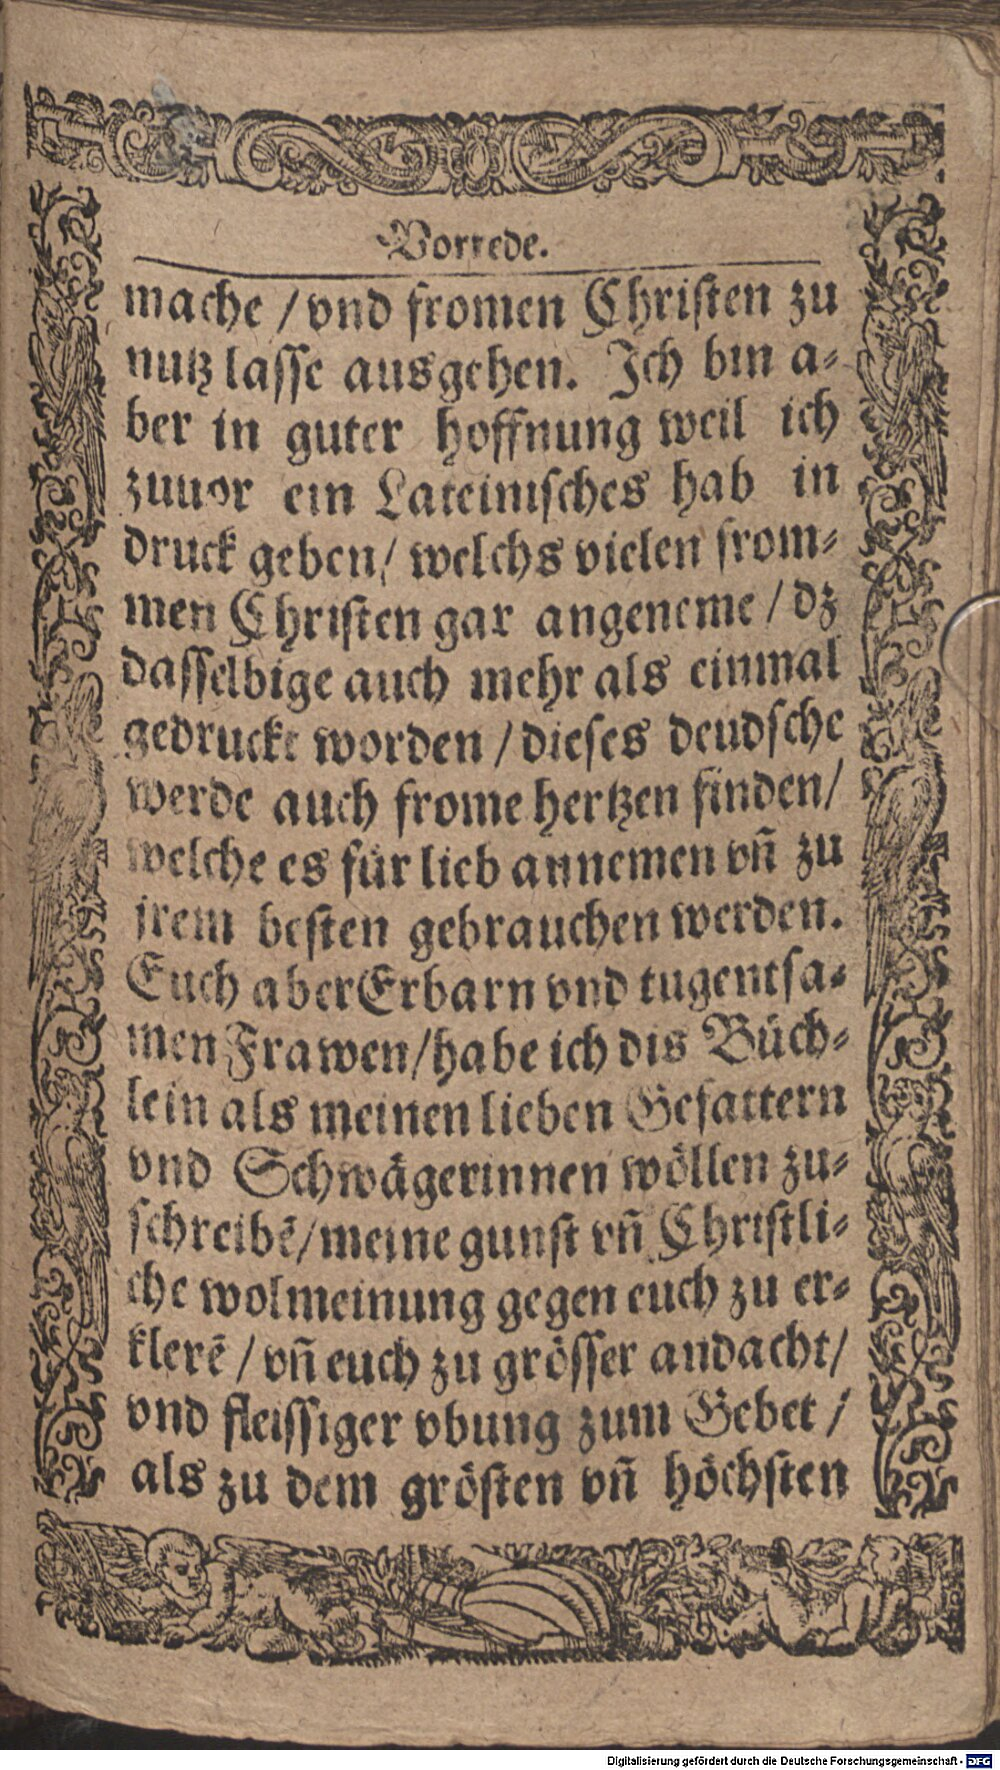 Vorrede.
mache / vnd fromen Christen zu
nutz lasse ausgehen. Ich bin a-
ber in guter hoffnung weil ich
zuuor ein Lateinisches hab in
druck geben / welchs vielen from-
men Christen gar angeneme / dz
dasselbige auch mehr als einmal
gedruckt worden / dieses deudsche
werde auch frome hertzen finden /
welche es für lieb annemen vñ zu
jrem besten gebrauchen werden.
Euch aber Erbarn vnd tugentsa-
men Frawen / habe ich dis Büch-
lein als meinen lieben Gefattern
vnd Schwägerinnen wöllen zu-
schreibẽ / meine gunst vñ Christli-
che wolmeinung gegen euch zu er-
klerẽ / vñ euch zu grösser andacht /
vnd fleissiger vbung zum Gebet /
als zu dem grösten vñ höchsten
Digitalisierung gefördert durch die Deutsche Forschungsgemeinschaft - DFG